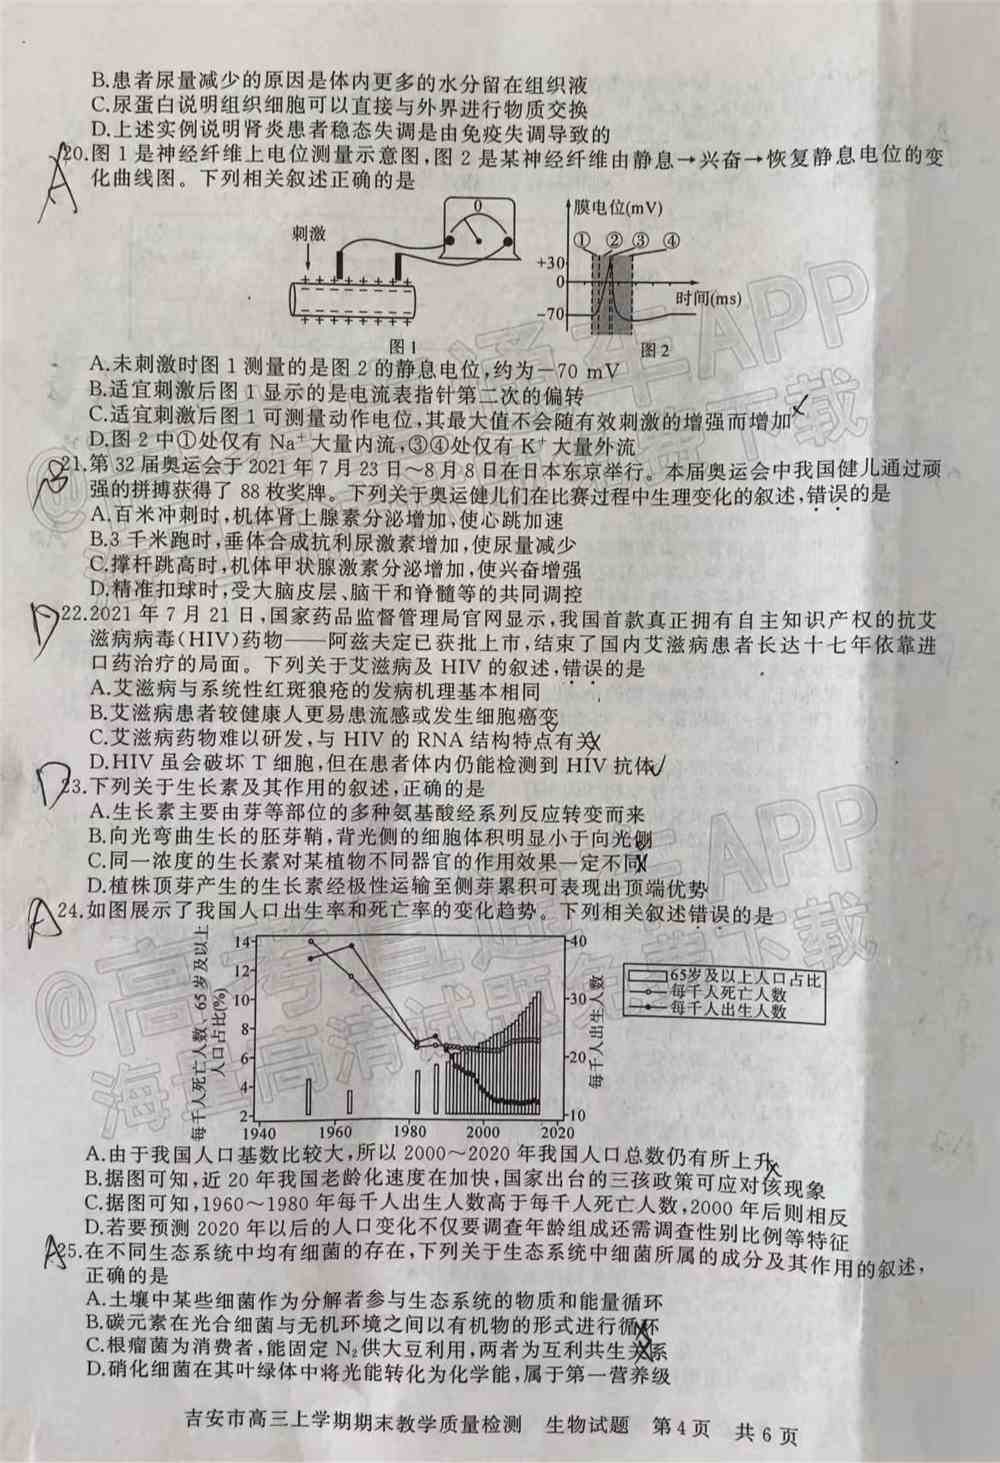 B.患者尿量减少的原因是体内更多的水分留在组织液
C.尿蛋白说明组织细胞可以直接与外界进行物质交换
D.上述实例说明肾炎患者稳态失调是由免疫失调导致的
A
20.图1是神经纤维上电位测量示意图,图2是某神经纤维由静息→兴奋→恢复静息电位的变
化曲线图。下列相关叙述正确的是
刺激
0
膜电位(mV)
① ② ③ ④
+30
0
-70
时间(ms)
图1
图2
A.未刺激时图1测量的是图2的静息电位,约为-70 mV
B.适宜刺激后图1显示的是电流表指针第二次的偏转
C.适宜刺激后图1可测量动作电位,其最大值不会随有效刺激的增强而增加
D.图2中①处仅有Na⁺大量内流,③④处仅有K⁺大量外流
B
21.第32届奥运会于2021年7月23日~8月8日在日本东京举行。本届奥运会中我国健儿通过顽
强的拼搏获得了88枚奖牌。下列关于奥运健儿们在比赛过程中生理变化的叙述,错误的是
A.百米冲刺时,机体肾上腺素分泌增加,使心跳加速
B.3千米跑时,垂体合成抗利尿激素增加,使尿量减少
C.撑杆跳高时,机体甲状腺激素分泌增加,使兴奋增强
D.精准扣球时,受大脑皮层、脑干和脊髓等的共同调控
D
22.2021年7月21日,国家药品监督管理局官网显示,我国首款真正拥有自主知识产权的抗艾
滋病病毒(HIV)药物——阿兹夫定已获批上市,结束了国内艾滋病患者长达十七年依靠进
口药治疗的局面。下列关于艾滋病及HIV的叙述,错误的是
A.艾滋病与系统性红斑狼疮的发病机理基本相同
B.艾滋病患者较健康人更易患流感或发生细胞癌变
C.艾滋病药物难以研发,与HIV的RNA结构特点有关
D.HIV虽会破坏T细胞,但在患者体内仍能检测到HIV抗体
D
23.下列关于生长素及其作用的叙述,正确的是
A.生长素主要由芽等部位的多种氨基酸经系列反应转变而来
B.向光弯曲生长的胚芽鞘,背光侧的细胞体积明显小于向光侧
C.同一浓度的生长素对某植物不同器官的作用效果一定不同
D.植株顶芽产生的生长素经极性运输至侧芽累积可表现出顶端优势
A
24.如图展示了我国人口出生率和死亡率的变化趋势。下列相关叙述错误的是
每千人死亡人数、65岁及以上
人口占比(%)
14
12
10
8
6
4
2
40
30
20
10
每千人出生人数
1940 1960 1980 2000 2020
65岁及以上人口占比
每千人死亡人数
每千人出生人数
A.由于我国人口基数比较大,所以2000~2020年我国人口总数仍有所上升
B.据图可知,近20年我国老龄化速度在加快,国家出台的三孩政策可应对该现象
C.据图可知,1960~1980年每千人出生人数高于每千人死亡人数,2000年后则相反
D.若要预测2020年以后的人口变化不仅要调查年龄组成还需调查性别比例等特征
A
25.在不同生态系统中均有细菌的存在,下列关于生态系统中细菌所属的成分及其作用的叙述,
正确的是
A.土壤中某些细菌作为分解者参与生态系统的物质和能量循环
B.碳元素在光合细菌与无机环境之间以有机物的形式进行循环
C.根瘤菌为消费者,能固定N₂供大豆利用,两者为互利共生关系
D.硝化细菌在其叶绿体中将光能转化为化学能,属于第一营养级
吉安市高三上学期期末教学质量检测 生物试题 第4页 共6页